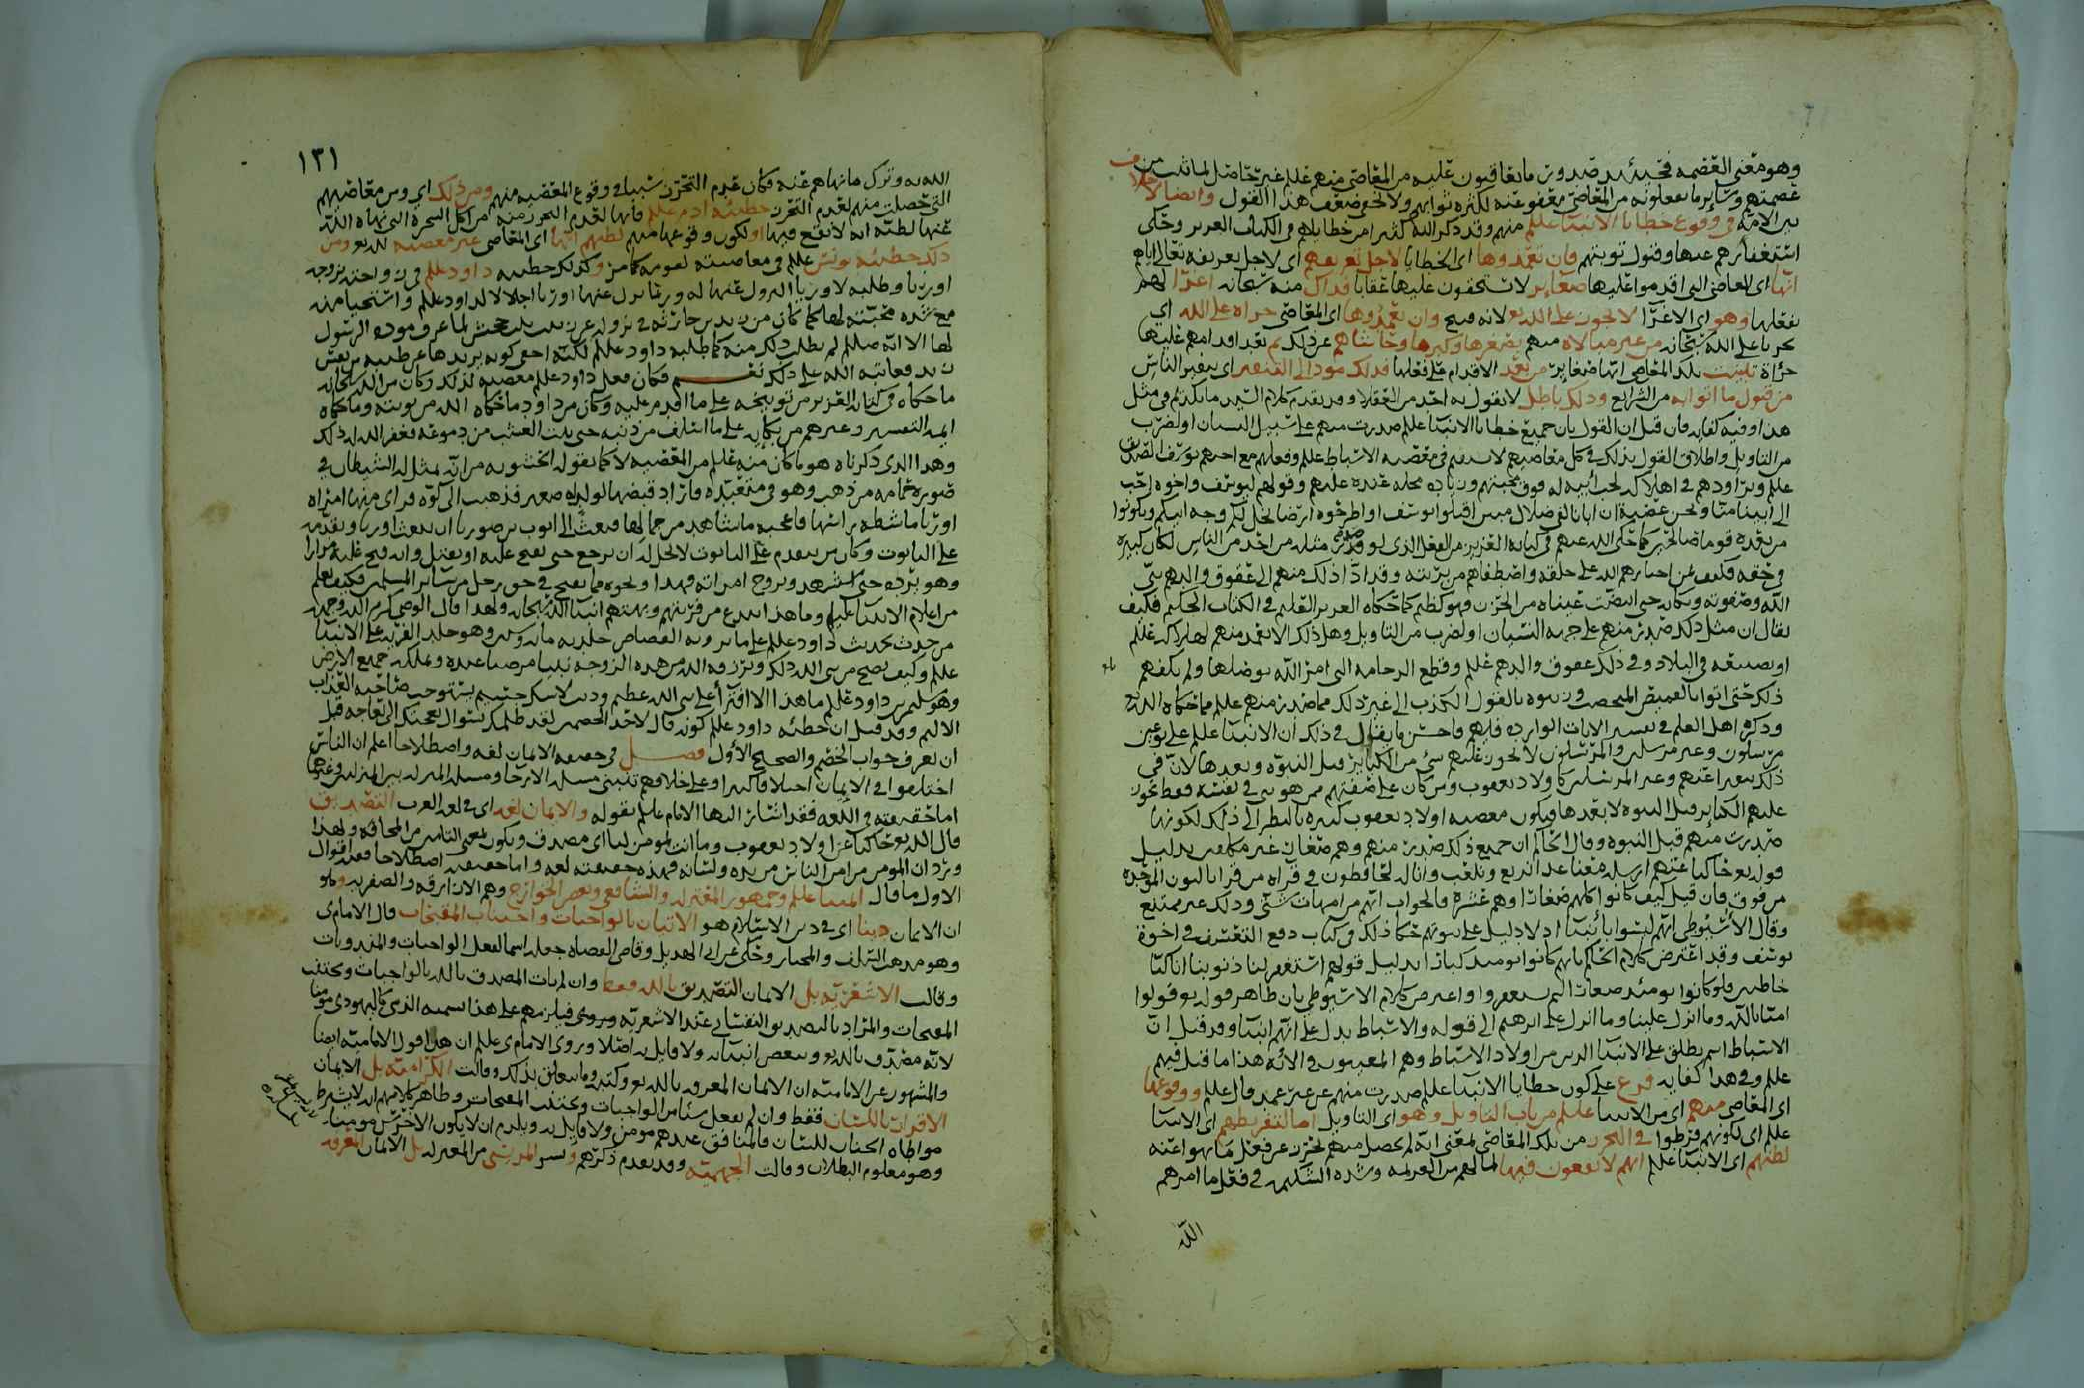 وهو معنى العصمة فحينئذ صدور ما يعاقبون عليه من المعاصي منهم عليلم غير حاصل لما ثبت من
عصمتهم وسائر ما يفعلونه من المعاصي معفو عنه لكثرة ثوابهم ولا يخفى ضعف هذا القول وايضا لا خلاف
بين الامة في وقوع خطايا الانبيا عليلم منهم وقد ذكر الله كثيرا من خطاياهم في الكتاب العزيز وحكى
استغفارهم عنها وقبول توبتهم فان تعمدوها اي الخطايا لاجل تعريفهم اي لاجل تعريفه تعالى اياهم
انها اي المعاصي التي اقدموا عليها صغائر لا يستحقون عليها عقابا فذاك منه سبحانه اغرا لهم
بفعلها وهو اي الاغرا لا يجوز على الله تع لانه قبيح وان تعمدوها اي المعاصي جراه على الله اي
تجريا على الله سبحانه من غير مبالاة منهم بصغرها وكبرها وحاشاهم عن ذلك ثم بعد اقدامهم عليها
جرأة تبينت تلك المعاصي انها صغائر من بعد الاقدام على فعلها فذلك مود الى التنفير اي تنفير الناس
من قبول ما اتوا به من الشرايع وذلك باطل لا يقول به احد من العقلا وقد تقدم كلام السيد مانكديم في مثل
هذا وفيه كفاية فان قيل ان القول بان جميع خطايا الانبيا عليلم صدرت منهم على سبيل النسيان او لضرب
من التاويل واطلاق القول بذلك في كل معاصيهم لا يستقيم في معصية الاسباط عليلم وفعلهم مع اخيهم يوسف الصديق
عليلم وتراودهم في اهلاكه لحب ابيه له فوق محبتهم وزيادة محله عنده عليهم وقولهم ليوسف واخوه احب
الى ابينا منا ونحن عصبة ان ابانا لفي ضلال مبين اقتلوا يوسف او اطرحوه ارضا يخل لكم وجه ابيكم وتكونوا
من بعده قوما صالحين كما حكى الله عنهم في كتابه العزيز من الفعل الذي لو وقع مثله من احد من الناس لكان كبيرة
في حقه فكيف بمن اختارهم الله على خلقه واصطفاهم من بريته وقد ادا ذلك منهم الى عقوق والدهم نبي
الله وصفوته وبكائه حتى ابيضت عيناه من الحزن فهو كظيم كما حكاه العزيز العليم في الكتاب الحكيم فكيف
يقال ان مثل ذلك صدر منهم على جهة النسيان او لضرب من التاويل وهل ذلك الا تعمد منهم لهلاكه عليلم
او تضييعه في البلاد وفي ذلك عقوق والدهم عليلم وقطع الرحامة التي امر الله بوصلها ولم يكفهم
ذلك حتى اتوا بالقميص وزينوه بالقول الكذب الى غير ذلك مما صدر منهم عليلم مما حكاه الله تع
وذكره اهل العلم في تفسير الايات الواردة فيهم فاحسن ما يقال في ذلك ان الانبيا عليلم على نوعين
مرسلون وغير مرسلين والمرسلون لا يجوز عليهم شي من الكبائر قبل النبوة وبعدها لان في
ذلك تنفيرا عنهم وغير المرسلين كاولاد يعقوب ومن كان على صفتهم ممن هو نبي في نفسه فقط تجوز
عليهم الكبائر قبل النبوة لا بعدها فيكون معصية اولاد يعقوب كبيرة بالنظر الى ذلك لكونها
صدرت منهم قبل النبوة وقال الحاكم ان جميع ذلك صدر منهم وهم صغار غير مكلفين بدليل
قوله تع حاكيا عنهم ارسله معنا غدا يرتع ويلعب وانا له لحافظون في قراءة من قرا بالنون الموحدة
من فوق فان قيل كيف كانوا كلهم صغارا وهم عشرة فالجواب انهم من امهات شتى وذلك غير ممتنع
وقال الاسيوطي انهم ليسوا بانبيا اذ لا دليل على نبوتهم حكا ذلك في كتاب دفع التعسف في اخوة
يوسف وقد اعترض كلام الحاكم بانهم كانوا يومئذ كبارا بدليل قولهم استغفر لنا ذنوبنا انا كنا
خاطين فلو كانوا يومئذ صغارا لم يستغفروا واعترض كلام الاسيوطي بان ظاهر قوله تع قولوا
امنا بالله وما انزل علينا وما انزل على ابرهيم الى قوله والاسباط يدل على انهم انبيا وقد قيل ان
الاسباط اسم يطلق على الانبيا الذين من اولاد الاسباط وهم المعنيون في الاية هذا ما قيل فيهم
عليلم وفي هذا كفاية فرع على كون خطايا الانبيا عليلم صدرت منهم عن غير عمد قال عليلم ووقوعها
اي المعاصي منهم اي من الانبيا عليلم من باب التاويل وهو اي التاويل اما لتفريطهم اي الانبيا
عليلم اي لكونهم فرطوا في التحرز من تلك المعاصي بمعنى انه لم يحصل منهم تحرز عن فعل ما نهوا عنه
لظنهم اي الانبيا عليلم انهم لا يقعون فيها لما لهم من العزيمة وشدة الشكيمة في فعل ما امرهم
الله
١٣١
الله به وترك ما نهاهم عنه فكان عدم التحرز سببا في وقوع المعصية منهم ومن ذلك اي ومن معاصيهم
التي حصلت منهم لعدم التحرز خطيئة ادم عليلم فانها لعدم التحرز منه من اكل الشجرة التي نهاه الله
عنها لظنه انه لا يقع فيها او لكون وقوعها منهم لظنهم انها اي المعاصي غير معصية لله تع ومن
ذلك خطيئة يونس عليلم في مغاضبته لقومه كما مر وكذلك خطيئة داود عليلم في زواجته بزوجة
اوريا وطلبه لاوريا النزول عنها له وربما نزل عنها اوريا اجلالا لداود عليلم واستحيا منه
مع شدة محبته لها كما كان من زيد بن حارثة في نزوله عن زينب بنت جحش لما عرف مودة الرسول
لها الا انه صللم لم يطلب ذلك منه كما طلبه داود عليلم لكنه اخفى كونه يريدها عن طيبة من نفس
زيد فعاتبه الله على ذلك نعم فكان فعل داود عليلم معصية لذلك وكان من الله سبحانه
ما حكاه في كتابه العزيز من توبيخه على ما اقدم عليه وكان من داود ما حكاه الله من توبته وما حكاه
ايمة التفسير وغيرهم من بكائه على ما اسلف من ذنبه حتى نبت العشب من دموعه فغفر الله له ذلك
وهذا الذي ذكرناه هو ما كان منه عليلم من المعصية لا كما يقوله الحشوية من انه تمثل له الشيطان في
صورة حمامة من ذهب وهو في متعبده فاراد قبضها لولد له صغير فذهبت الى كوة فراى منها امراة
اوريا ماشطة راسها فاعجبه ما شاهد من جمالها فبعث الى ايوب بن صوريا ان ابعث اوريا وقدمه
على التابوت وكان من يتقدم على التابوت لا يحل له ان يرجع حتى يفتح عليه او يقتل وانه فتح عليه مرارا
وهو يرده حتى استشهد وتزوج امراته فهذا ونحوه مما يقبح في حق رجل من سائر المسلمين فكيف بعلم
من اعلام الانبيا عليلم وما هذا ابتدع من فريتهم وبهتهم انبيا الله سبحانه ولهذا قال الوصي كرم الله وجهه
من حدث بحديث داود عليلم على ما يرويه القصاص جلدته مائة وستين وهو حد الفرية على الانبيا
عليلم وكيف يصح من نبي الله ذلك ويرزقه الله من هذه الزوجة نبيا مرضيا عنده ويملكه جميع الارض
وهو سليمن بن داود عليلم ما هذا الا افترا على نبي الله عظيم وذنب لا شك جسيم يستوجب صاحبه العذاب
الاليم وقد قيل ان خطيئة داود عليلم كونه قال لاحد الخصمين لقد ظلمك بسؤال نعجتك الى نعاجه قبل
ان يعرف جواب الخصم والصحيح الاول فصل في حقيقة الايمان لغة واصطلاحا اعلم ان الناس
اختلفوا في الايمان اختلافا كبيرا وعلى خلافهم تنبني مسئلة الارجا ومسئلة المنزلة بين المنزلتين وغيرها
اما حقيقته في اللغة فقد اشار اليها الامام عليلم بقوله والايمان لغة اي في لغة العرب التصديق
قال الله تع حاكيا عن اولاد يعقوب وما انت بمؤمن لنا اي مصدق ويكون بمعنى التامين من المخافة ولهذا
ورد ان المومن من امن الناس من يده ولسانه فهذه حقيقته لغة واما حقيقته اصطلاحا ففيه اقوال
الاول ما قال ايمتنا عليلم وجمهور المعتزلة والشافعي وبعض الخوارج وهم الازارقة والصفرية وهو
ان الايمان دينا اي في دين الاسلام هو الاتيان بالواجبات واجتناب المقبحات قال الامام ى
وهو مذهب السلف والمختار وحكى عن ابي الهذيل وقاضي القضاة جعله اسما لفعل الواجبات والمندوبات
وقالت الاشعرية بل الايمان التصديق بالله فقط وان لم يات المصدق بالله بالواجبات ويجتنب
المقبحات والمراد بالتصديق النفساني عند الاشعرية وروي فيلزمهم على هذا تسمية الذمي كاليهودي مومنا
لانه مصدق بالله تع وببعض انبيائه ولا قايل به اصلا وروى الامام ى عليلم ان هذا قول الامامية ايضا
والمشهور عن الامامية ان الايمان المعرفة بالله تع وكتبه وما يتعلق بذلك وقالت الكرامية بل الايمان
الاقرار باللسان فقط وان لم يفعل شيئا من الواجبات ويجتنب المقبحات وظاهر كلامهم انه لا يشترط
مواطاة الجنان للسان فالمنافق عندهم مومن ولا قايل به ويلزم ان لا يكون الاخرس مومنا
وهو معلوم البطلان وقالت الجهمية وقد تقدم ذكرهم وبشر المريسي من المعتزلة بل الايمان المعرفة